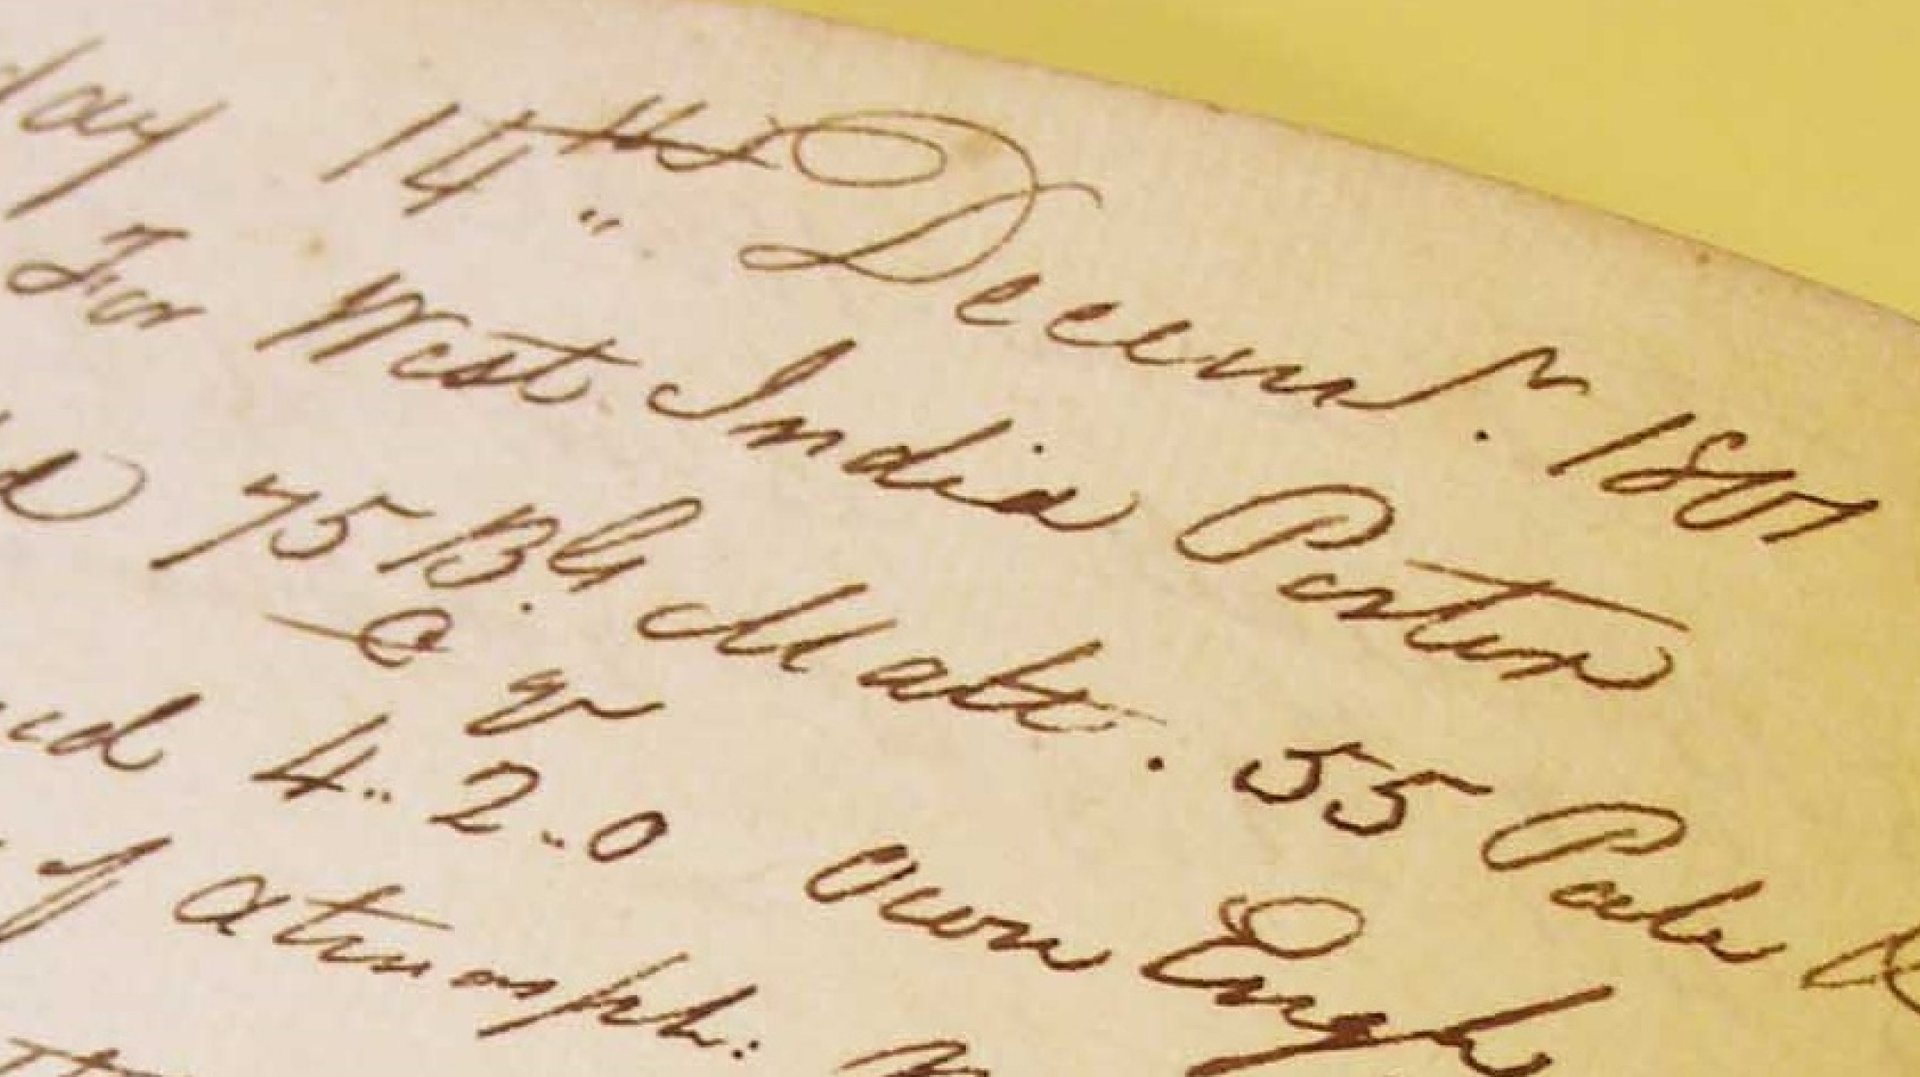 day 14th Decemr. 1801
For West India Porter
75 Bls Malt. 55 Pale
C qr
4.. 2..0 Own Engh
of atmosph: